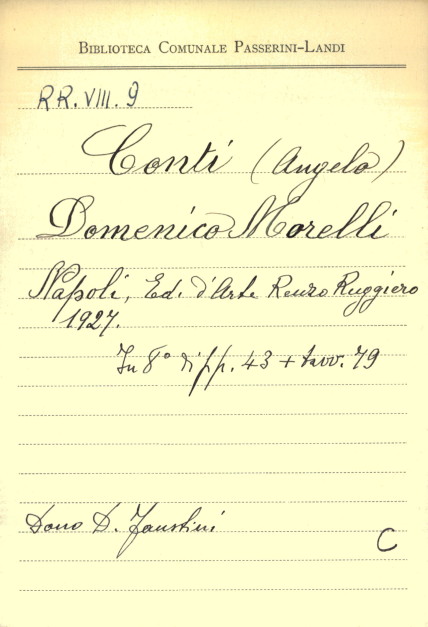 Biblioteca Comunale Passerini-Landi
RR. VIII. 9
Conti (Angelo)
Domenico Morelli
Napoli, Ed. d'Arte Renzo Ruggiero
1927.
In 8° di pp. 43 + tavv. 79
Dono D. Faustini
C